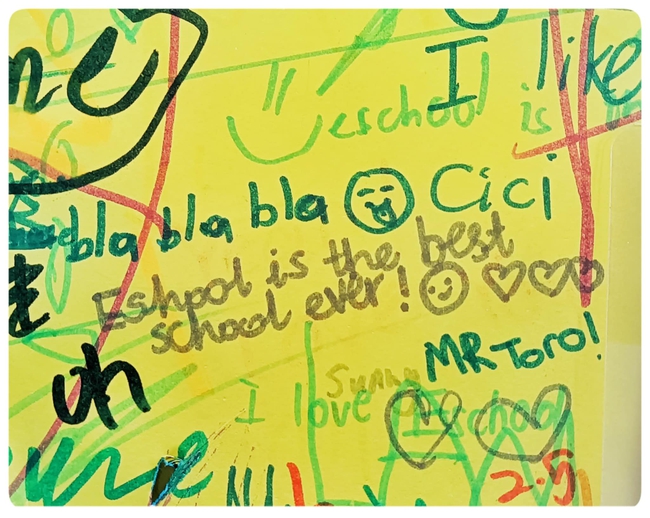 I like
eschool is
bla bla bla Cici
Eshool is the best
school ever!
MR Toro!
uh
Sunny
I love Eschool
2-5